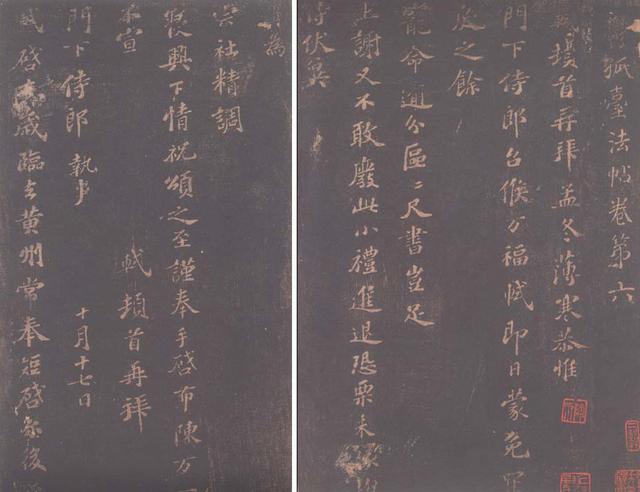 孤臺法帖卷第六
頓首再拜孟冬薄寒恭惟
門下侍郎台候万福軾即日蒙免罪
戾之餘
寵命逾分區〻尺書豈足
上謝又不敢廢此小禮進退恐栗未
時伏冀
為
宗社精調
寢興下情祝頌之至謹奉手啓布陳万一
不宣
軾頓首再拜
門下侍郎執事 十月十七日
軾啓去歲臨去黃州常奉短啓尔後